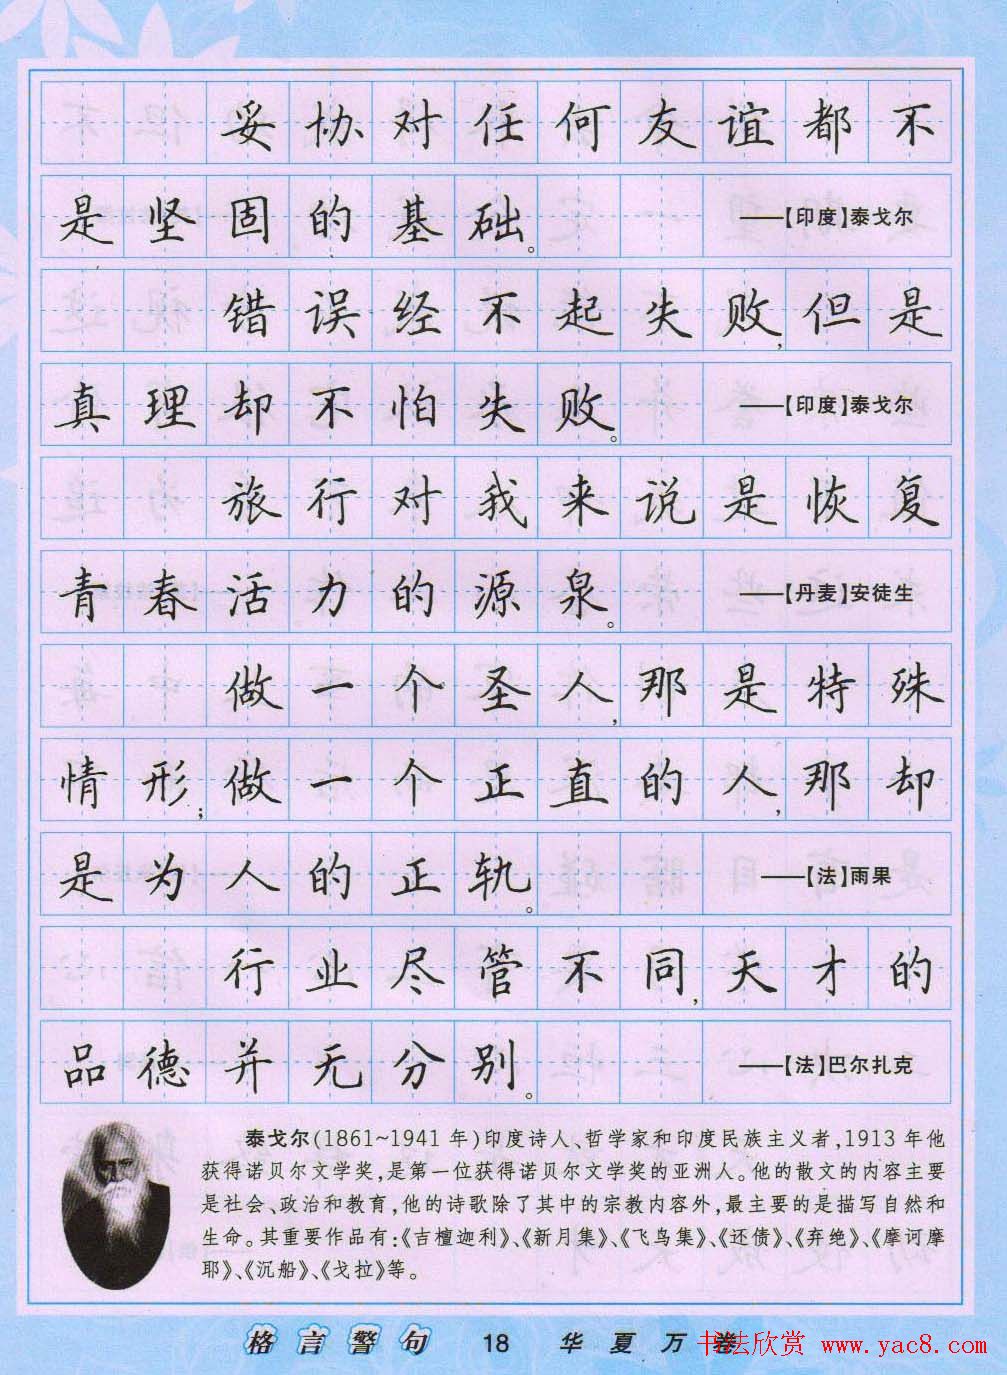 妥协对任何友谊都不
是坚固的基础。 ——【印度】泰戈尔
错误经不起失败,但是
真理却不怕失败。 ——【印度】泰戈尔
旅行对我来说是恢复
青春活力的源泉。 ——【丹麦】安徒生
做一个圣人,那是特殊
情形;做一个正直的人,那却
是为人的正轨。 ——【法】雨果
行业尽管不同,天才的
品德并无分别。 ——【法】巴尔扎克
泰戈尔(1861~1941年)印度诗人、哲学家和印度民族主义者,1913年他
获得诺贝尔文学奖,是第一位获得诺贝尔文学奖的亚洲人。他的散文的内容主要
是社会、政治和教育,他的诗歌除了其中的宗教内容外,最主要的是描写自然和
生命。其重要作品有:《吉檀迦利》、《新月集》、《飞鸟集》、《还债》、《弃绝》、《摩诃摩
耶》、《沉船》、《戈拉》等。
格言警句 18 华夏万卷
书法欣赏 www.yac8.com